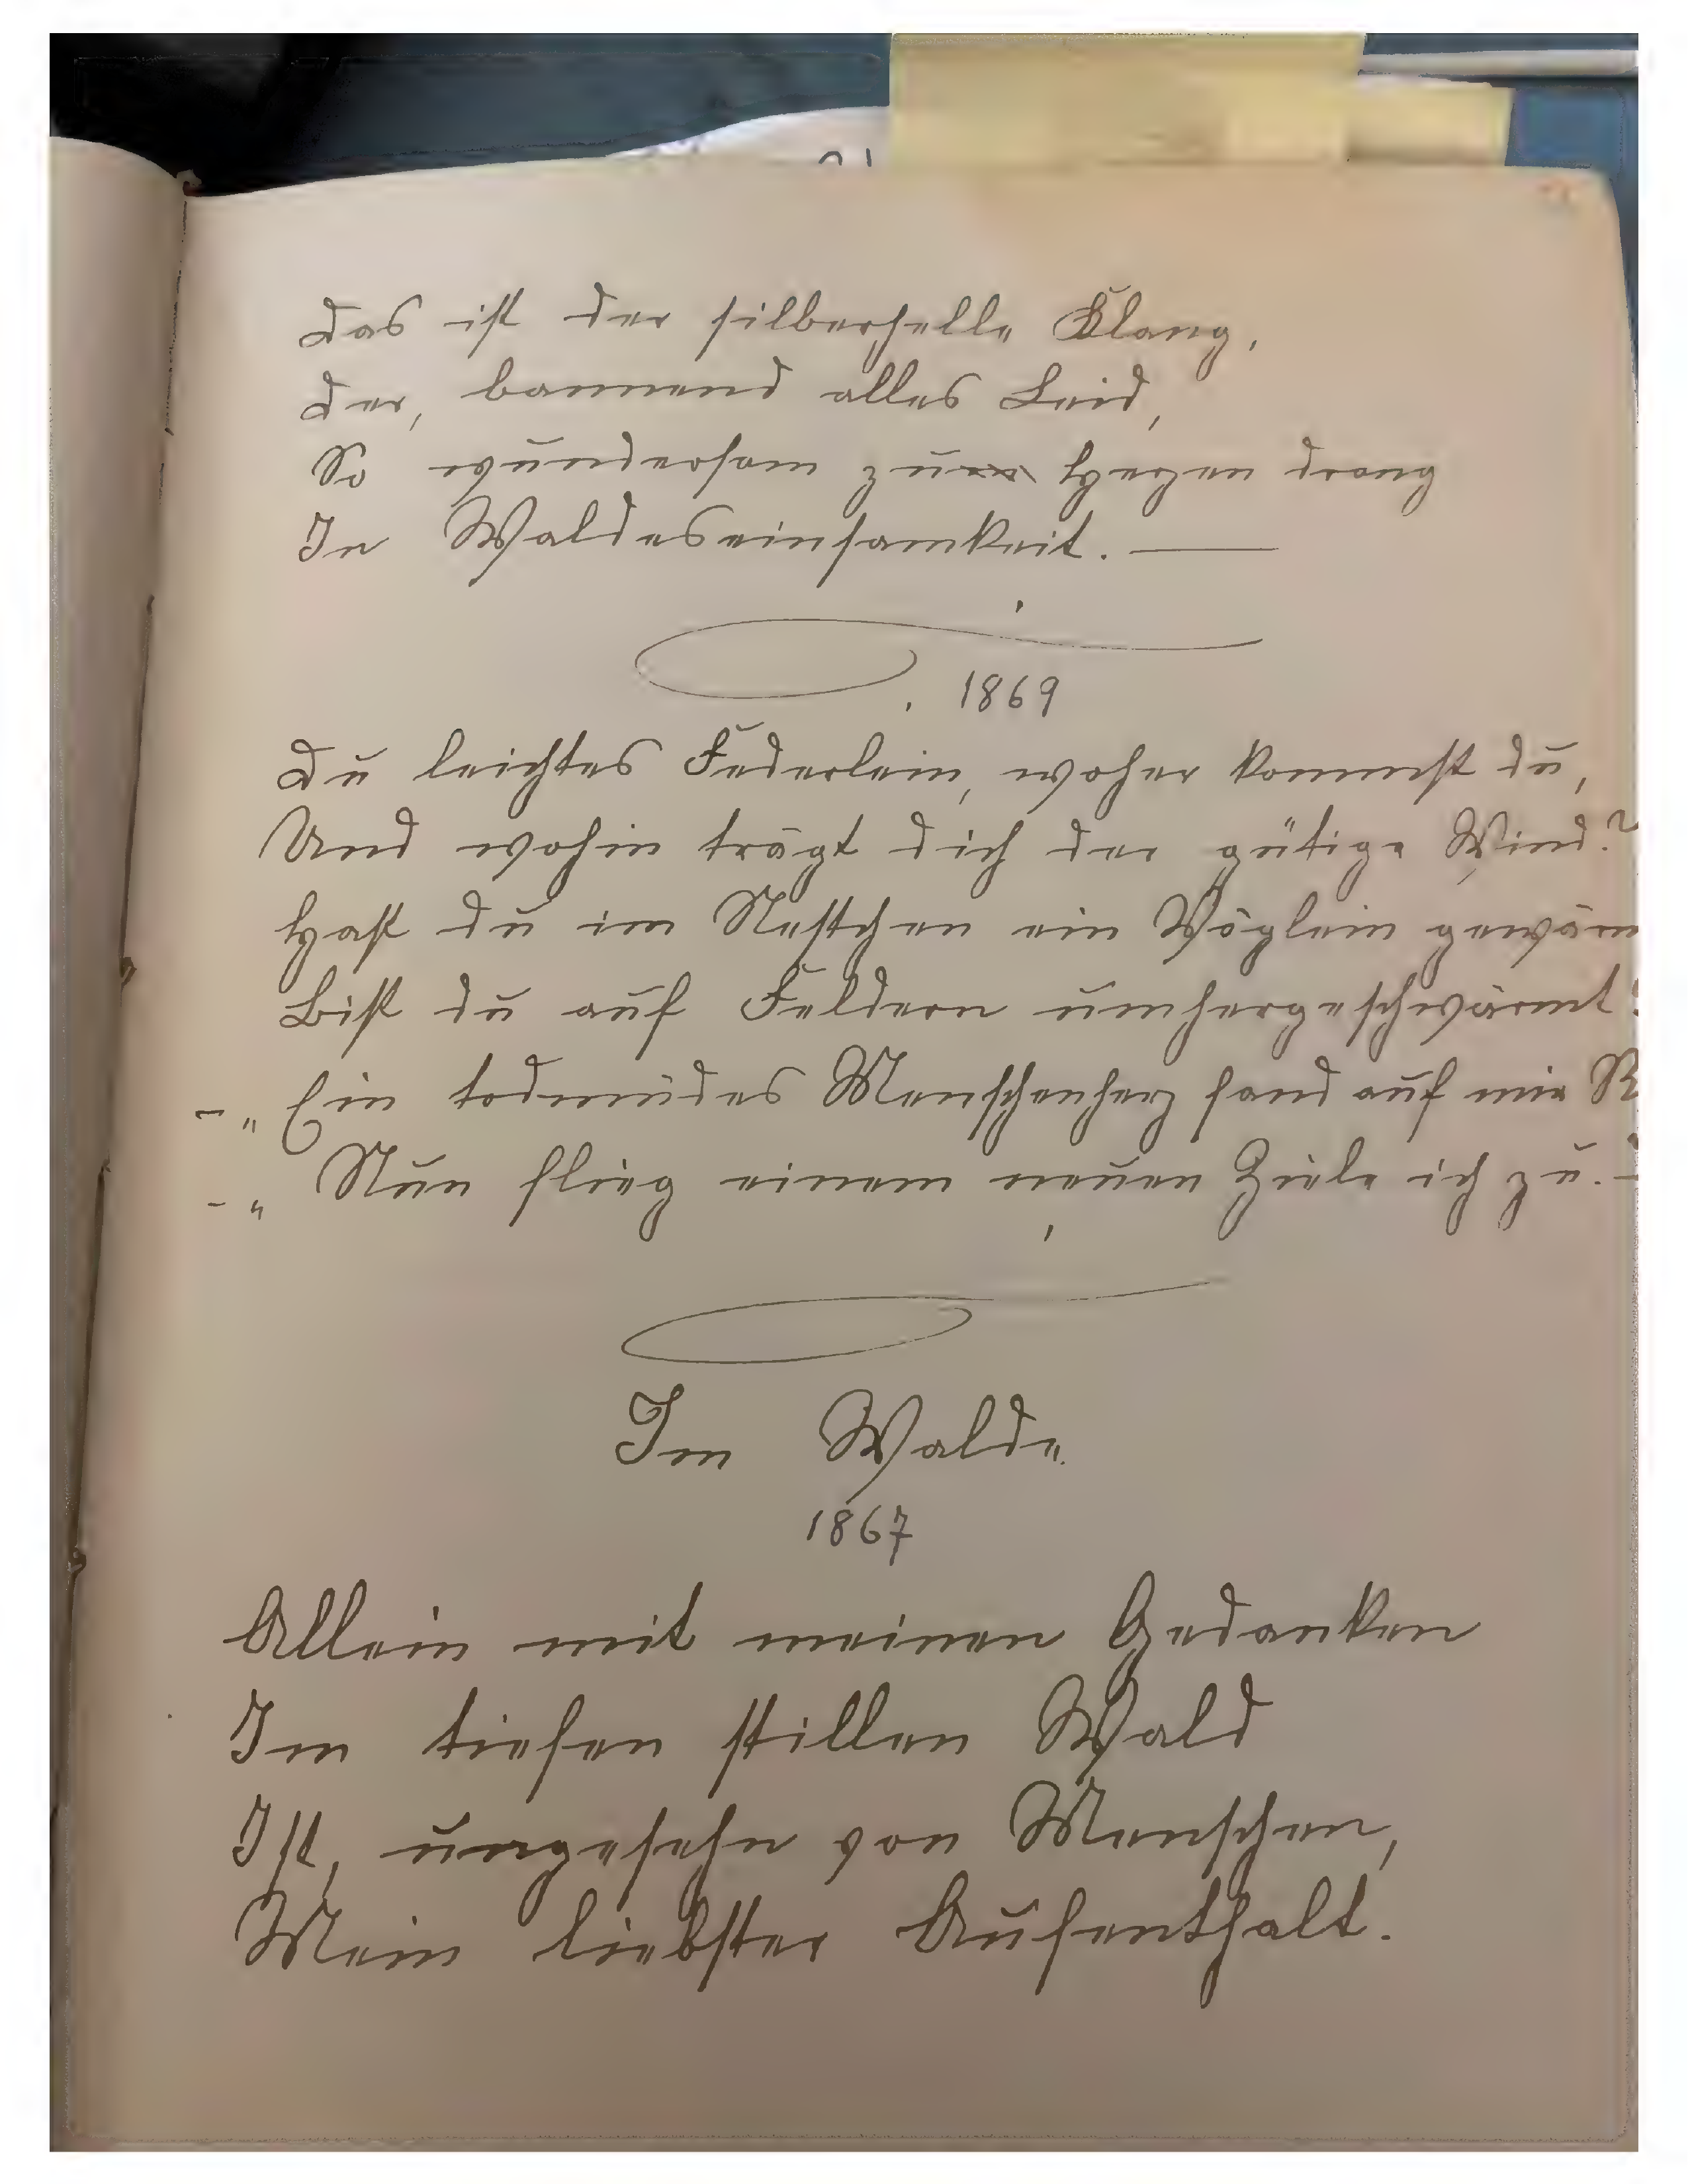 Das ist der silberhelle Klang,
Der, bannend alles Leid,
So wundersam zum Herzen drang
In Waldeseinsamkeit. —
1869
Du leichtes Federlein, woher kommst du,
Und wohin trägt dich der gütige Wind?
Hast du im Nestchen ein Vöglein gewärm
Bist du auf Feldern umhergeschwärmt?
– „Ein todmüdes Menschenherz fand auf mir R
– „Nun flieg einem neuen Ziele ich zu. –
Im Walde.
1867
Allein mit meinen Gedanken
Im tiefen stillen Wald
Ist, ungesehn von Menschen,
Mein liebster Aufenthalt.